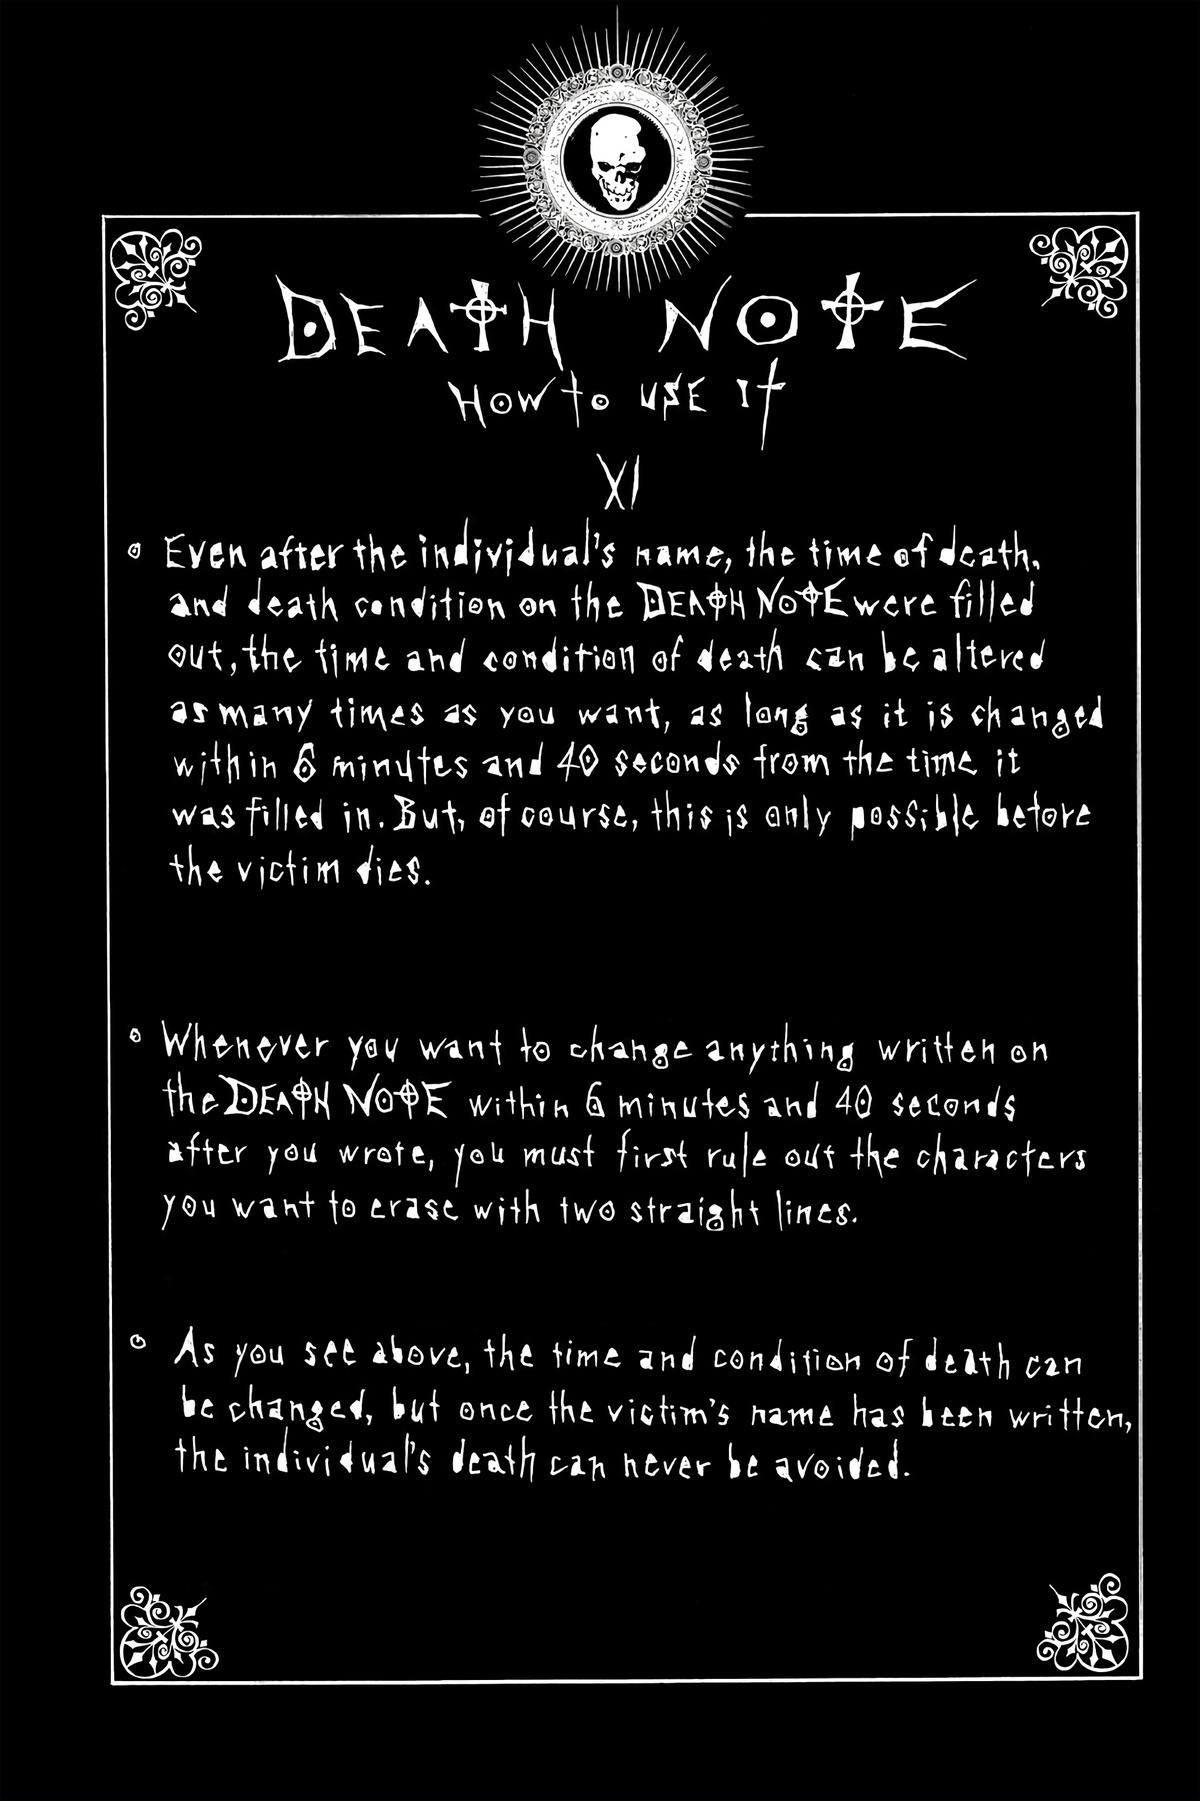 DEATH NOTE
HOW to USE It
XI
Even after the individual's name, the time of death,
and death condition on the DEATH NOTE were filled
out, the time and condition of death can be altered
as many times as you want, as long as it is changed
within 6 minutes and 40 seconds from the time it
was filled in. But, of course, this is only possible before
the victim dies.
Whenever you want to change anything written on
the DEATH NOTE within 6 minutes and 40 seconds
after you wrote, you must first rule out the characters
you want to erase with two straight lines.
As you see above, the time and condition of death can
be changed, but once the victim's name has been written,
the individual's death can never be avoided.